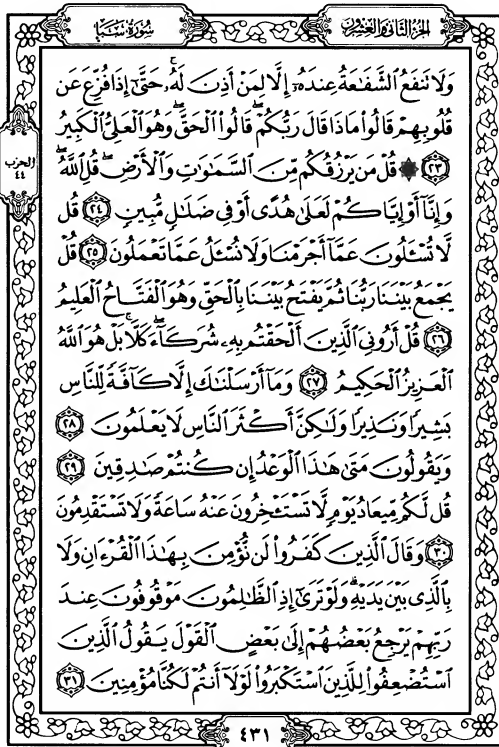 سُورَةُ سَبَإٍ
الجُزءُ الثَّانِي وَالعِشْرُونَ
وَلَا تَنفَعُ الشَّفَـٰعَةُ عِندَهُۥٓ إِلَّا لِمَنْ أَذِنَ لَهُۥ ۚ حَتَّىٰٓ إِذَا فُزِّعَ عَن
قُلُوبِهِمْ قَالُوا۟ مَاذَا قَالَ رَبُّكُمْ ۖ قَالُوا۟ ٱلْحَقَّ ۖ وَهُوَ ٱلْعَلِىُّ ٱلْكَبِيرُ
الحزب
٤٤
٢٣ ۞ قُلْ مَن يَرْزُقُكُم مِّنَ ٱلسَّمَـٰوَٰتِ وَٱلْأَرْضِ ۖ قُلِ ٱللَّهُ ۖ
وَإِنَّآ أَوْ إِيَّاكُمْ لَعَلَىٰ هُدًى أَوْ فِى ضَلَـٰلٍ مُّبِينٍ ٢٤ قُل
لَّا تُسْـَٔلُونَ عَمَّآ أَجْرَمْنَا وَلَا نُسْـَٔلُ عَمَّا تَعْمَلُونَ ٢٥ قُلْ
يَجْمَعُ بَيْنَنَا رَبُّنَا ثُمَّ يَفْتَحُ بَيْنَنَا بِٱلْحَقِّ وَهُوَ ٱلْفَتَّاحُ ٱلْعَلِيمُ
٢٦ قُلْ أَرُونِىَ ٱلَّذِينَ أَلْحَقْتُم بِهِۦ شُرَكَآءَ ۖ كَلَّا ۚ بَلْ هُوَ ٱللَّهُ
ٱلْعَزِيزُ ٱلْحَكِيمُ ٢٧ وَمَآ أَرْسَلْنَـٰكَ إِلَّا كَآفَّةً لِّلنَّاسِ
بَشِيرًا وَنَذِيرًا وَلَـٰكِنَّ أَكْثَرَ ٱلنَّاسِ لَا يَعْلَمُونَ ٢٨
وَيَقُولُونَ مَتَىٰ هَـٰذَا ٱلْوَعْدُ إِن كُنتُمْ صَـٰدِقِينَ ٢٩
قُل لَّكُم مِّيعَادُ يَوْمٍ لَّا تَسْتَـْٔخِرُونَ عَنْهُ سَاعَةً وَلَا تَسْتَقْدِمُونَ
٣٠ وَقَالَ ٱلَّذِينَ كَفَرُوا۟ لَن نُّؤْمِنَ بِهَـٰذَا ٱلْقُرْءَانِ وَلَا
بِٱلَّذِى بَيْنَ يَدَيْهِ ۗ وَلَوْ تَرَىٰٓ إِذِ ٱلظَّـٰلِمُونَ مَوْقُوفُونَ عِندَ
رَبِّهِمْ يَرْجِعُ بَعْضُهُمْ إِلَىٰ بَعْضٍ ٱلْقَوْلَ يَقُولُ ٱلَّذِينَ
ٱسْتُضْعِفُوا۟ لِلَّذِينَ ٱسْتَكْبَرُوا۟ لَوْلَآ أَنتُمْ لَكُنَّا مُؤْمِنِينَ ٣١
٤٣١